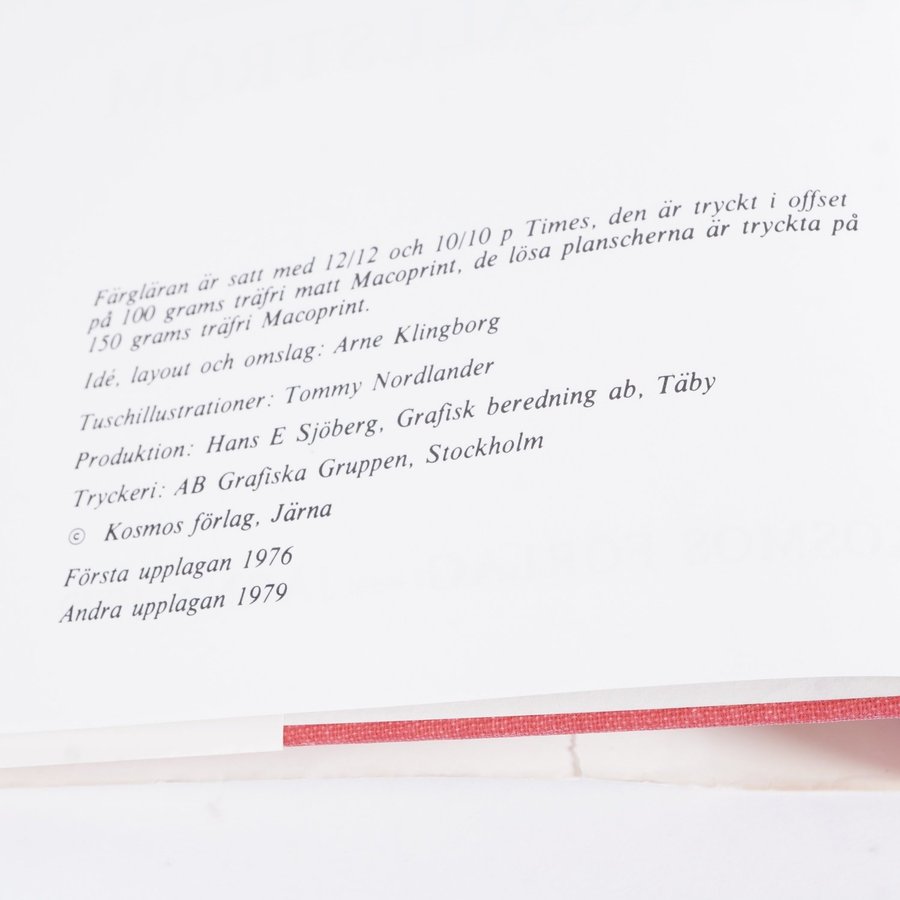 Färgläran är satt med 12/12 och 10/10 p Times, den är tryckt i offset
på 100 grams träfri matt Macoprint, de lösa planscherna är tryckta på
150 grams träfri Macoprint.
Idé, layout och omslag: Arne Klingborg
Tuschillustrationer: Tommy Nordlander
Produktion: Hans E Sjöberg, Grafisk beredning ab, Täby
Tryckeri: AB Grafiska Gruppen, Stockholm
© Kosmos förlag, Järna
Första upplagan 1976
Andra upplagan 1979